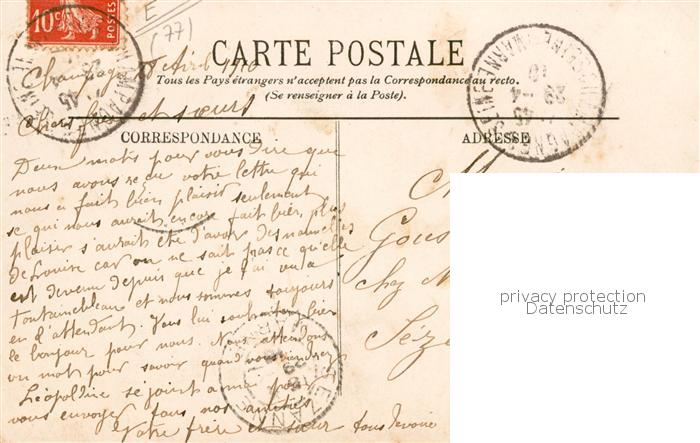 10c
POSTES
E
(77)
CARTE POSTALE
Tous les Pays étrangers n'acceptent pas la Correspondance au recto.
(Se renseigner à la Poste).
Champagne 28 Avril 1910
Chers frère et sœurs
CORRESPONDANCE
ADRESSE
Deux mots pour vous dire que
nous avons reçu votre lettre qui
nous a fait bien plaisir seulement
se qui nous aurait encore fait bien plus
plaisir s'aurait été d'avoir des nouvelles
de Louise car on ne sait pas ce qu'elle
est devenu depuis que je l'ai vu à
Fontainebleau et nous sommes toujours
en l'attendant. Vous lui souhaiterez bien
le bonjour pour nous. Nous attendons
un mot pour savoir quand vous viendrez
Léopoldine se joint a moi pour
vous envoyer tous nos amitiés
Votre frère et sœur tous dévoué
Gous
chez M
Séze
SEZANNE
MARNE
privacy protection
Datenschutz